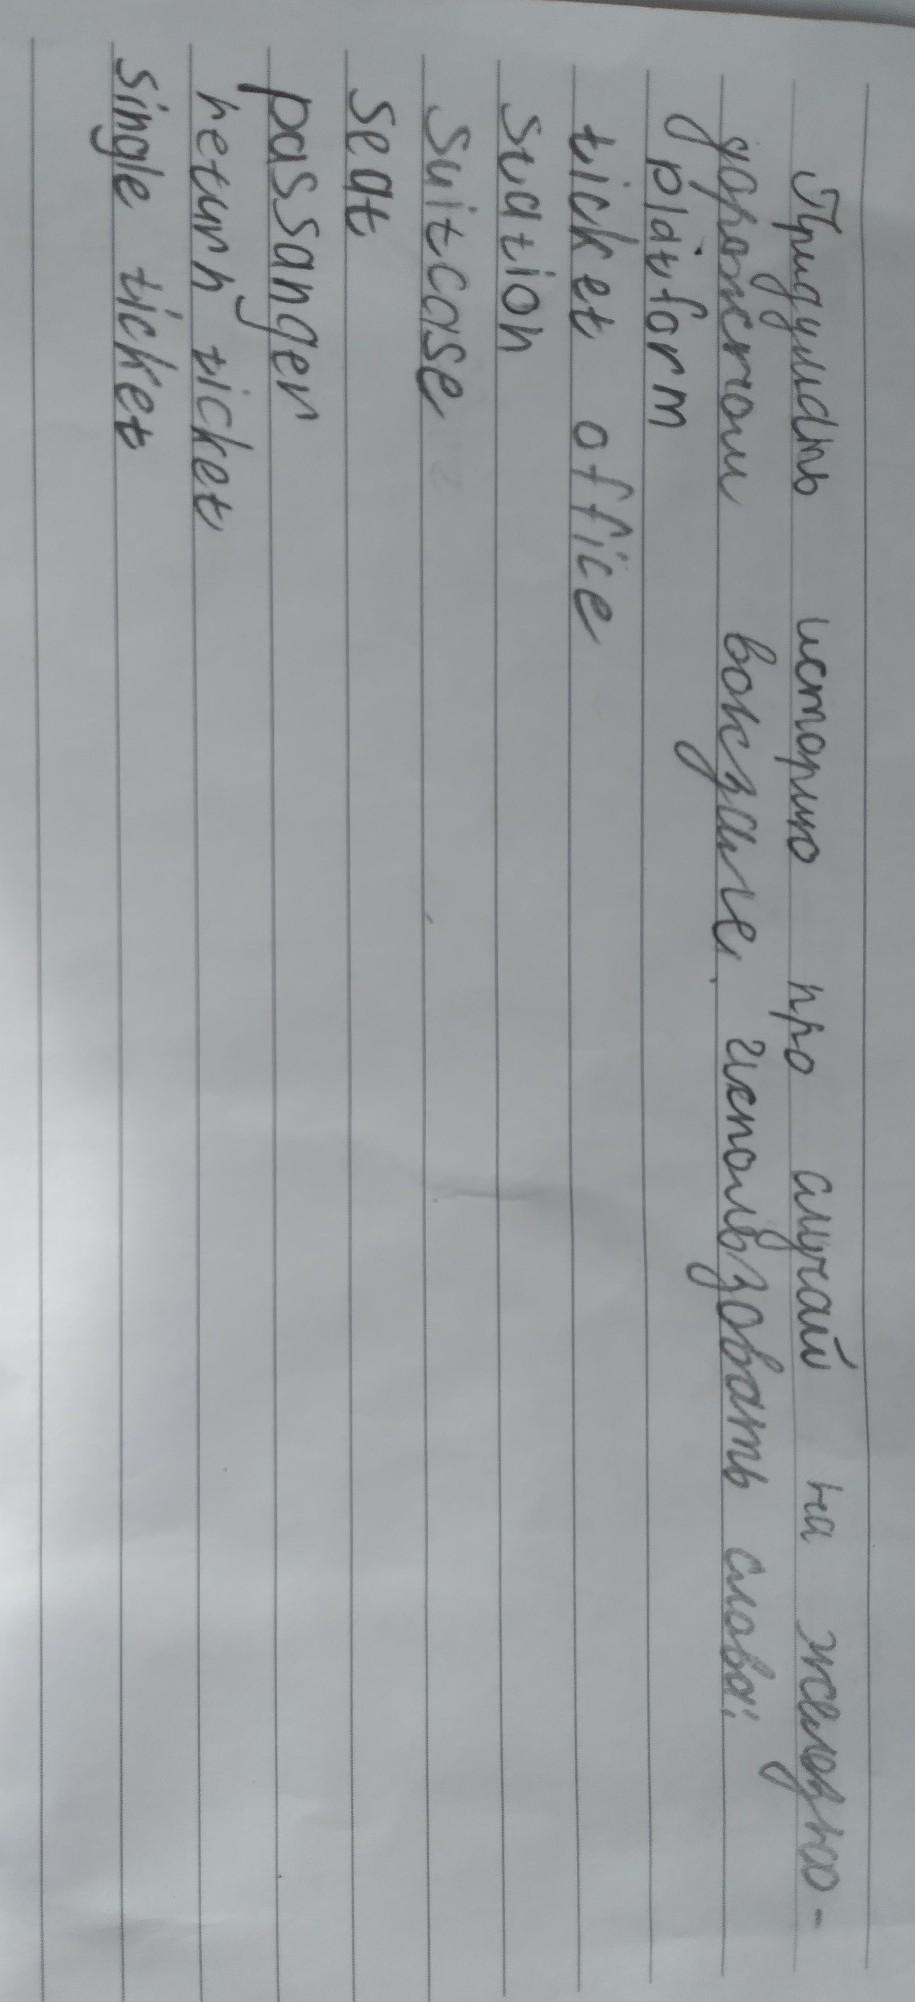 Придумать историю про случай на железно-
дорожном вокзале, использовать слова:
platform
ticket office
station
suitcase
seat
passanger
return ticket
single ticket